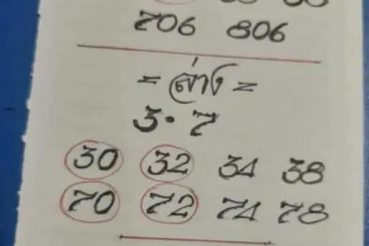 706 806
= ล่าง =
3 · 7
30 32 34 38
70 72 74 78